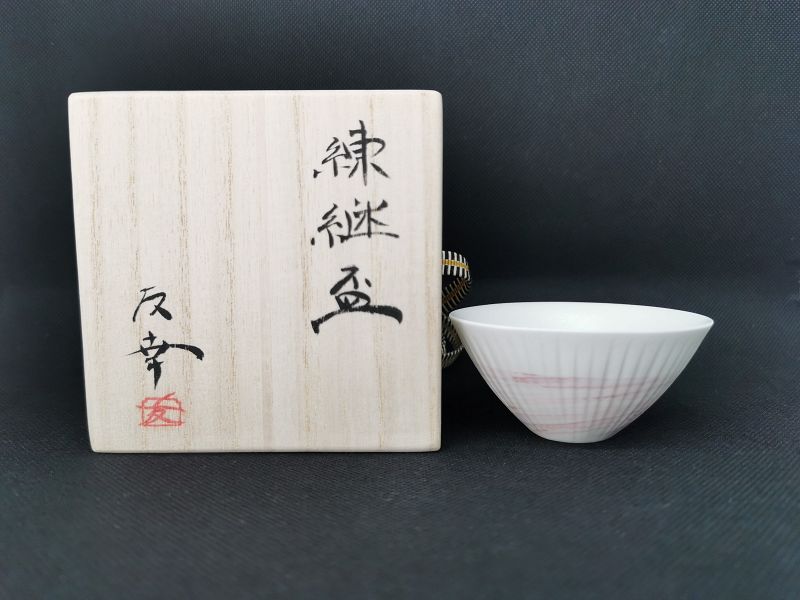 練継盃
友幸
友